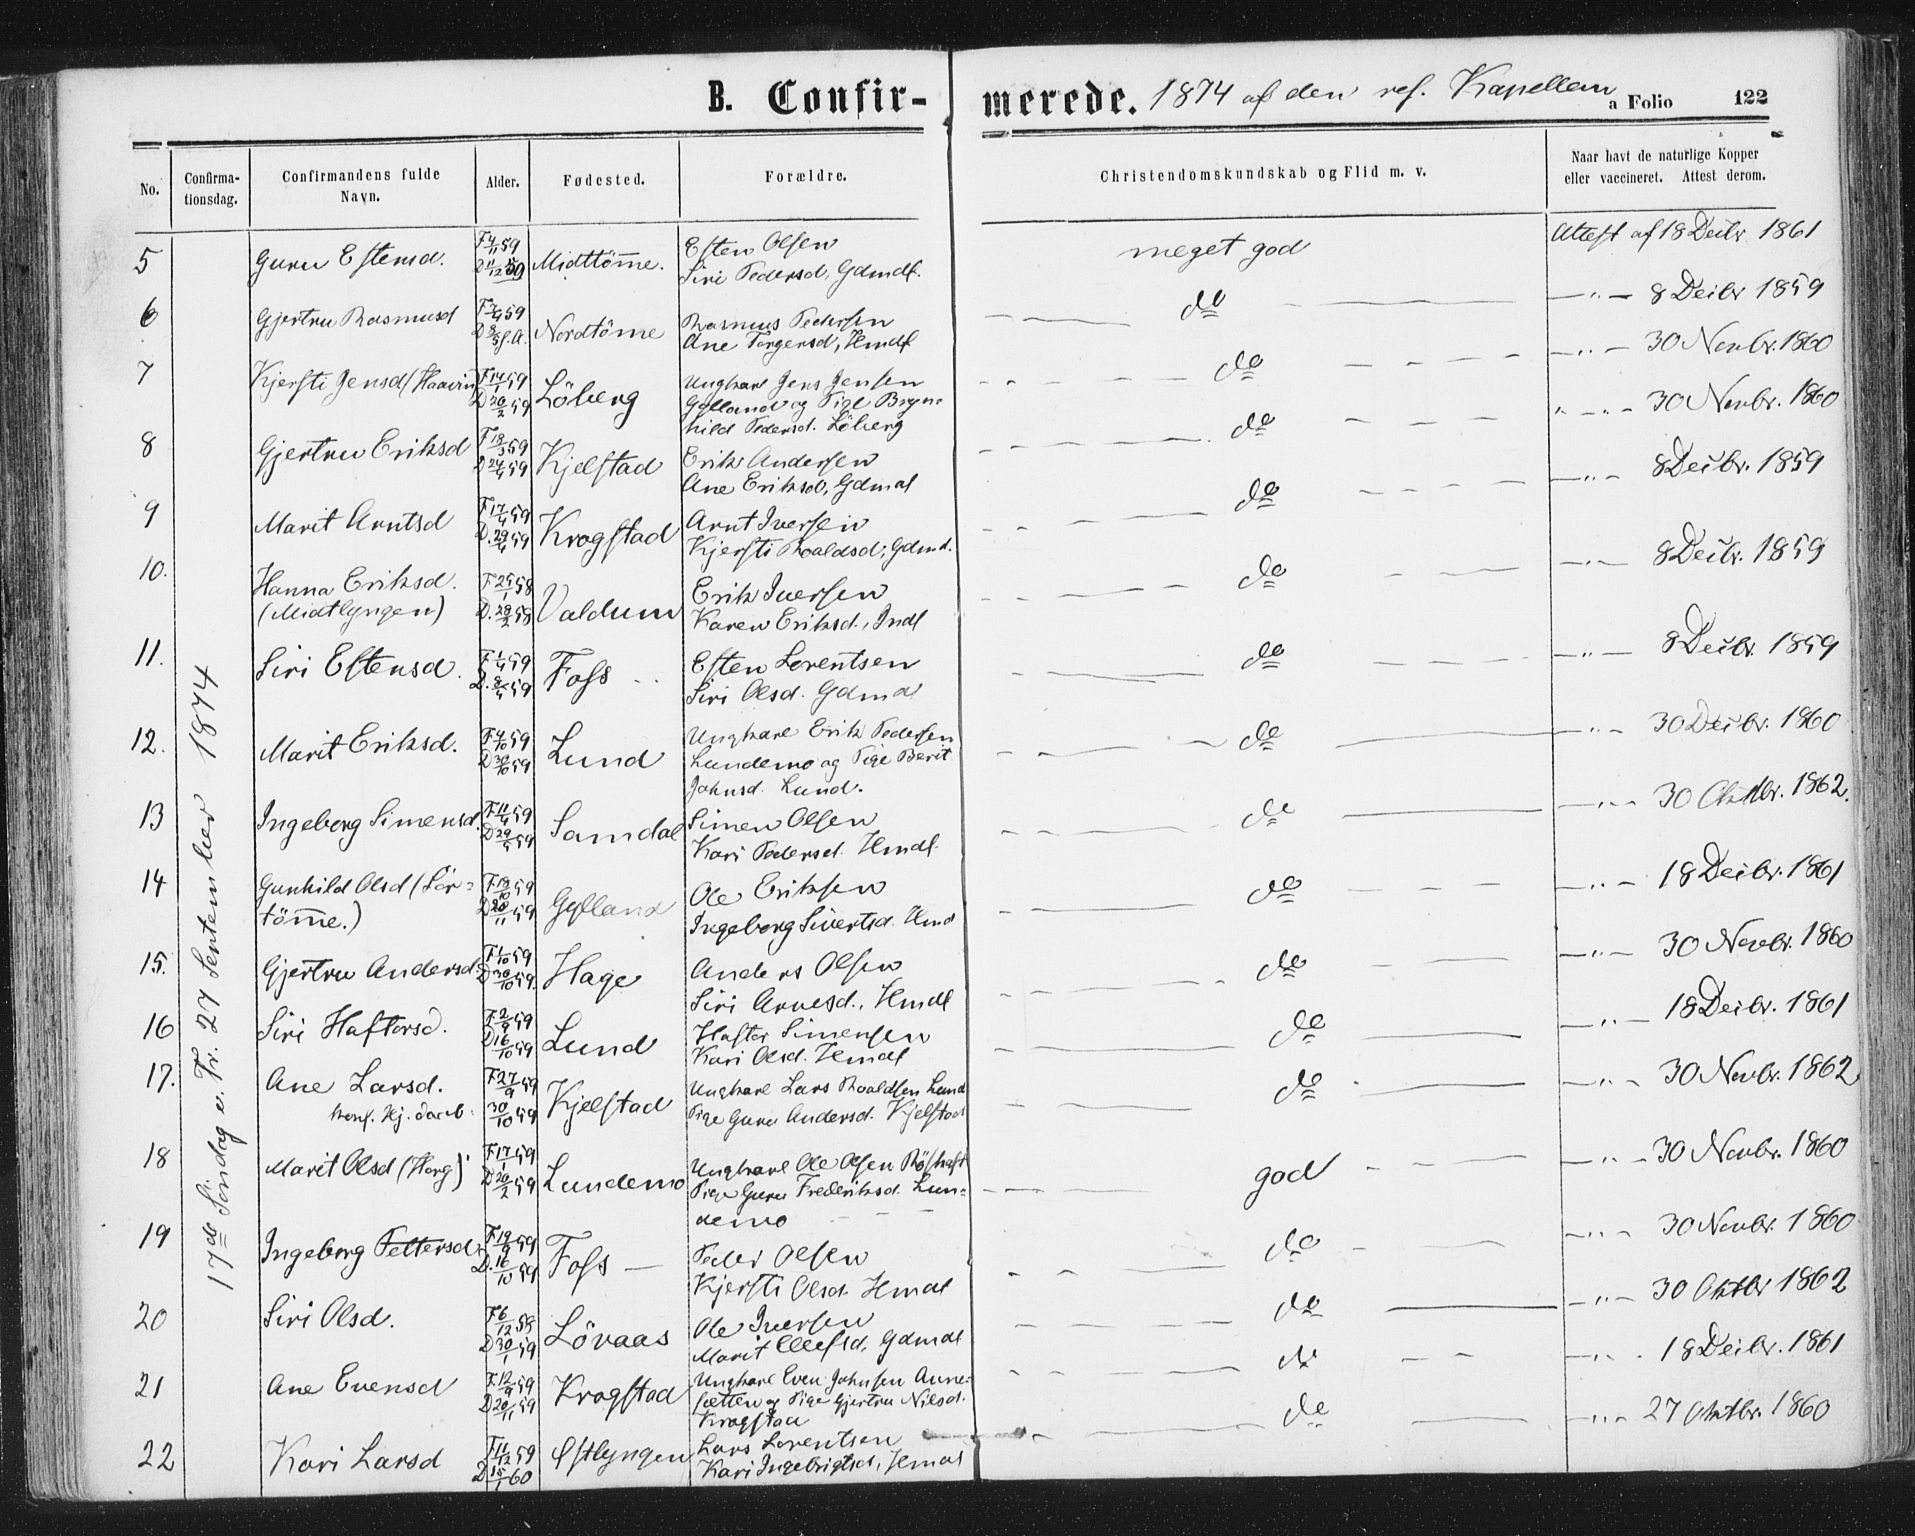 B. Confir-
merede. 1874 af den res. Kapellan
a Folio 122
No.
Confirma-
tionsdag.
Confirmandens fulde
Navn.
Alder.
Fødested.
Forældre.
Christendomskundskab og Flid m. v.
Naar havt de naturlige Kopper
eller vaccineret. Attest derom.
17de Söndag e. Tr. 27 September 1874
5 Guru Estensd. F 4/11 59 Midttöme. Esten Olsen meget god Attest af 18 Decbr. 1861
D 11/12 59 Siri Pedersd, Gdmdf.
6 Gjertru Rasmusd F 7/4 59 Nordtöme Rasmus Pedersen do — " — 8 Decbr 1859
D 8/5 s. A. Ane Torgersd, Hmdf
7 Kjersti Jensd (Haavin) F 14/1 59 Löberg Ungkarl Jens Jensen do — " — 30 Novbr. 1860
D 20/2 59 Gylland og Pige Bryn-
hild Pedersd. Löberg
8 Gjertru Eriksd F 18/3 59 Kjelstad Erik Andersen do " — 30 Novbr. 1860
D 24/4 59 Ane Eriksd, Gdmdf
9 Marit Arntsd F 17/4 59 Krogstad Arnt Iversen do — " — 8 Decbr. 1859
D. 29/4 59 Kjersti Roaldsd, Gdmd.
10. Hanna Eriksd. F 25/1 58 Valdum Erik Iversen do — " — 8 Decbr. 1859
(Midtlyngen) D. 28/2 58 Karen Eriksd., Indf
11. Siri Estensd. F 1/4 59 Foss Esten Lorentsen do — " — 8 Decbr. 1859
D. 8/5 59 Siri Olsd. Gdmd
12. Marit Eriksd. F 4/10 59 Lund Ungkarl Erik Pedersen do — " — 30 Decbr. 1860
D 30/10 59 Lundemo og Pige Berit
Johnsd. Lund.
13 Ingeborg Simensd. F 11/4 59 Samdal Simen Olsen do — " — 30 Oktbr. 1862.
D 29/5 59 Kari Pedersd. Hmdf.
14 Gunhild Olsd (Sör- F 19/10 59 Gylland Ole Eriksen do — " — 18 Decbr. 1861
töme.) D 20/11 59 Ingeborg Sivertsd. Hmd
15. Gjertru Andersd. F 1/10 59 Hage Anders Olsen do — " — 30 Novbr. 1860
D 30/10 59. Siri Arnesd., Hmdf
16 Siri Haftorsd. F 2/9 59 Lund Haftor Simensen do — " — 18 Decbr. 1861
D 16/10 59 Kari Olsd. Hmdf
17. Ane Larsd. F 27/9 59 Kjelstad Ungkarl Lars Roaldsen Lund do — " — 30 Novbr. 1862
Hj. daab. 30/10 59 Pige Guru Andersd. Kjelstad
18 Marit Olsd (Horg) F 17/1 59 Lundemo Ungkarl Ole Olsen god — " — 30 Novbr. 1860
D 20/2 59 Pige Guru Frederiksd. Lun-
demo
19 Ingeborg Pettersd. F 19/9 59 Foss Peder Olsen do — " — 30 Novbr. 1860
D. 16/10 59 Kjersti Olsd. Hmdf
20 Siri Olsd. F 6/12 58 Lövaas Ole Iversen do — " — 30 Oktbr 1862
D 30/1 59 Marit Ellefsd, Gdmdf
21 Ane Evensd F. 12/9 59 Krogstad Ungkarl Even Johnsen Aune- do — " — 18 Decbr. 1861
D 20/11 59 sætten og Pige Gjertru Nilsd.
Krogstad
22 Kari Larsd F 11/12 59 Østlyngen Lars Lorentsen do — " — 27 Oktbr. 1860
D 15/1 60 Kari Ingebrigtsd, Hmdf